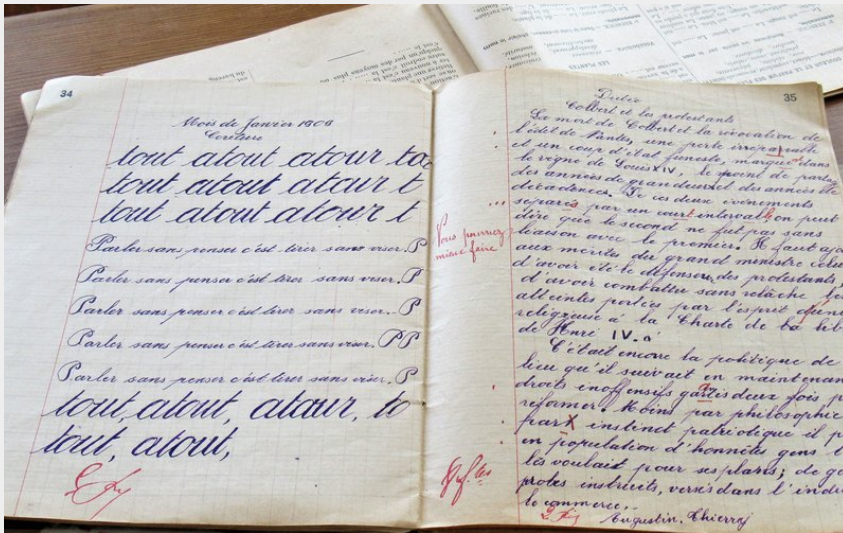 34
Mois de Janvier 1906
tout atout atour to
tout atout atour t
tout atout atour t
Parler sans penser c'est tirer sans viser. P
Parler sans penser c'est tirer sans viser. P
Parler sans penser c'est tirer sans viser. P
Parler sans penser c'est tirer sans viser. PP
Parler sans penser c'est tirer sans viser. P
tout, atout, atour, to
tout, atout,
35
Dictée
Colbert et les protestants
La mort de Colbert et la révocation de
l'édit de Nantes, une perte irréparable
et un coup d'état funeste, marque dans
le règne de Louis XIV, le point de partage
des années de grandeur et des années de
décadences. De ces deux événements
séparés par un court intervalle on peut
dire que le second ne fut pas sans
liaison avec le premier. Il faut ajo
Vous pourriez
mieux faire
aux mérites du grand ministre celui
d'avoir été le défenseur des protestants,
d'avoir combattu sans relâche les
atteintes portées par l'esprit d'unité
religieuse à la Charte de la lib
de Henri IV.
C'était encore la politique de
lieu qu'il suivait en maintenan
droits inoffensifs deux fois p
réformer. Moins par philosophie
par X instinct patriotique il p
en population d'honnêtes gens l
les voulait pour ses plans; de ge
probes instruits, versés dans l'indu
le commerce.
Augustin Thierry